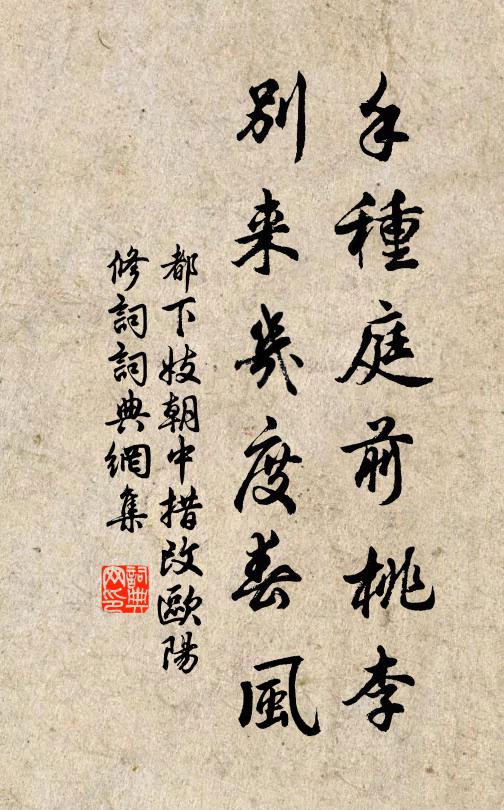 手種庭前桃李
別来幾度春風
都下妓朝中措改歐陽
修詞詞典網集
詞典網印